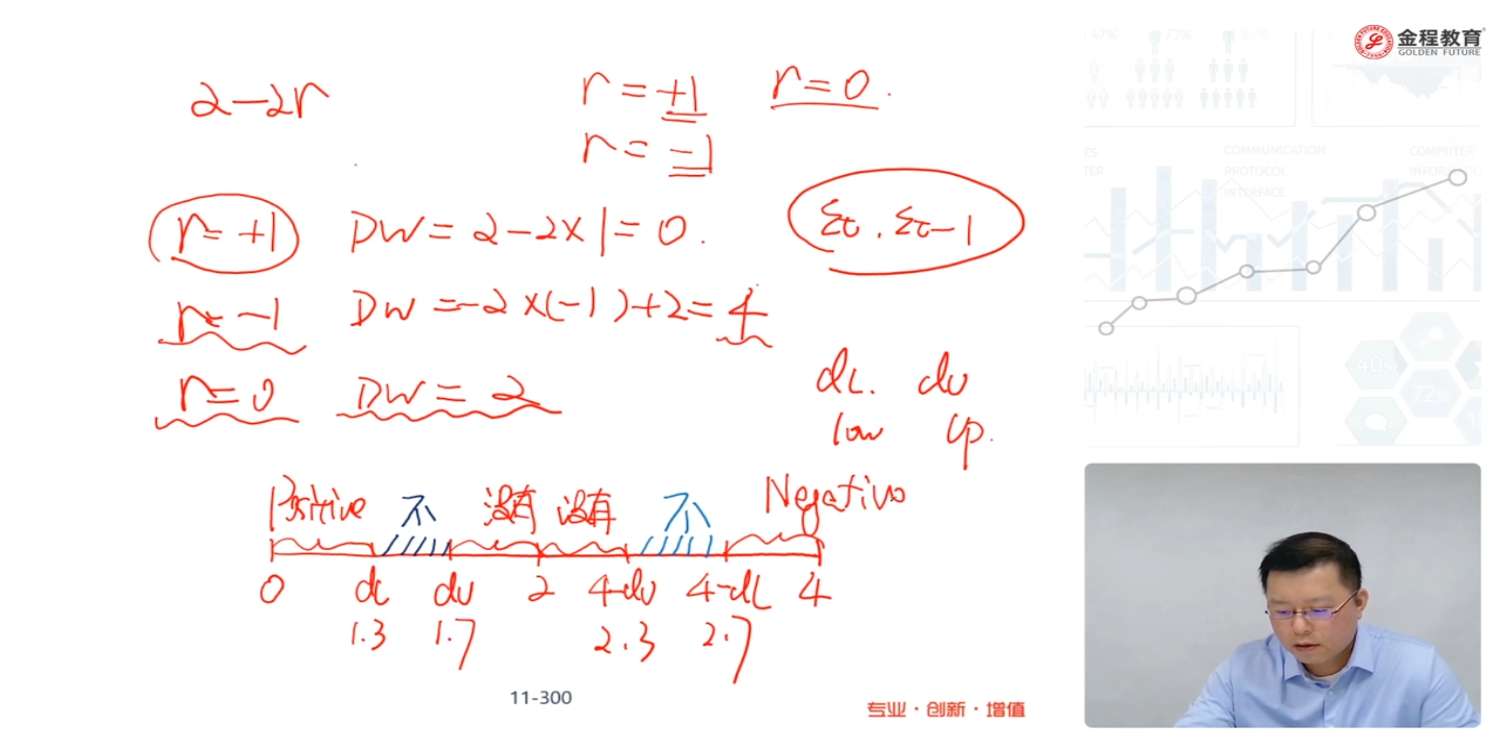 金程教育
GOLDEN FUTURE
2-2r
r=+1 r=0.
r=-1
r=+1 DW=2-2×1=0. εt. εt-1
r=-1 DW=-2×(-1)+2=4
r=0 DW=2
dL. du
low up.
Positive 不 没有 没有 不 Negative
0 dL du 2 4-du 4-dL 4
1.3 1.7 2.3 2.7
11-300
专业·创新·增值
COMMUNICATION
PROTOCOL
INTERFACE
COMPUTER
40%
72%